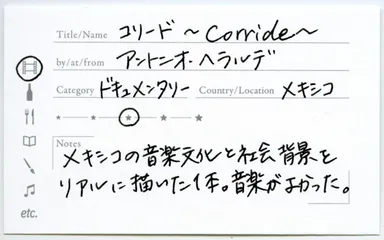 Title/Name コリード ～Corride～
by/at/from アントニオ・ヘラルデ
Category ドキュメンタリー Country/Location メキシコ
Notes
メキシコの音楽文化と社会背景を
リアルに描いた1本。音楽がよかった。
etc.